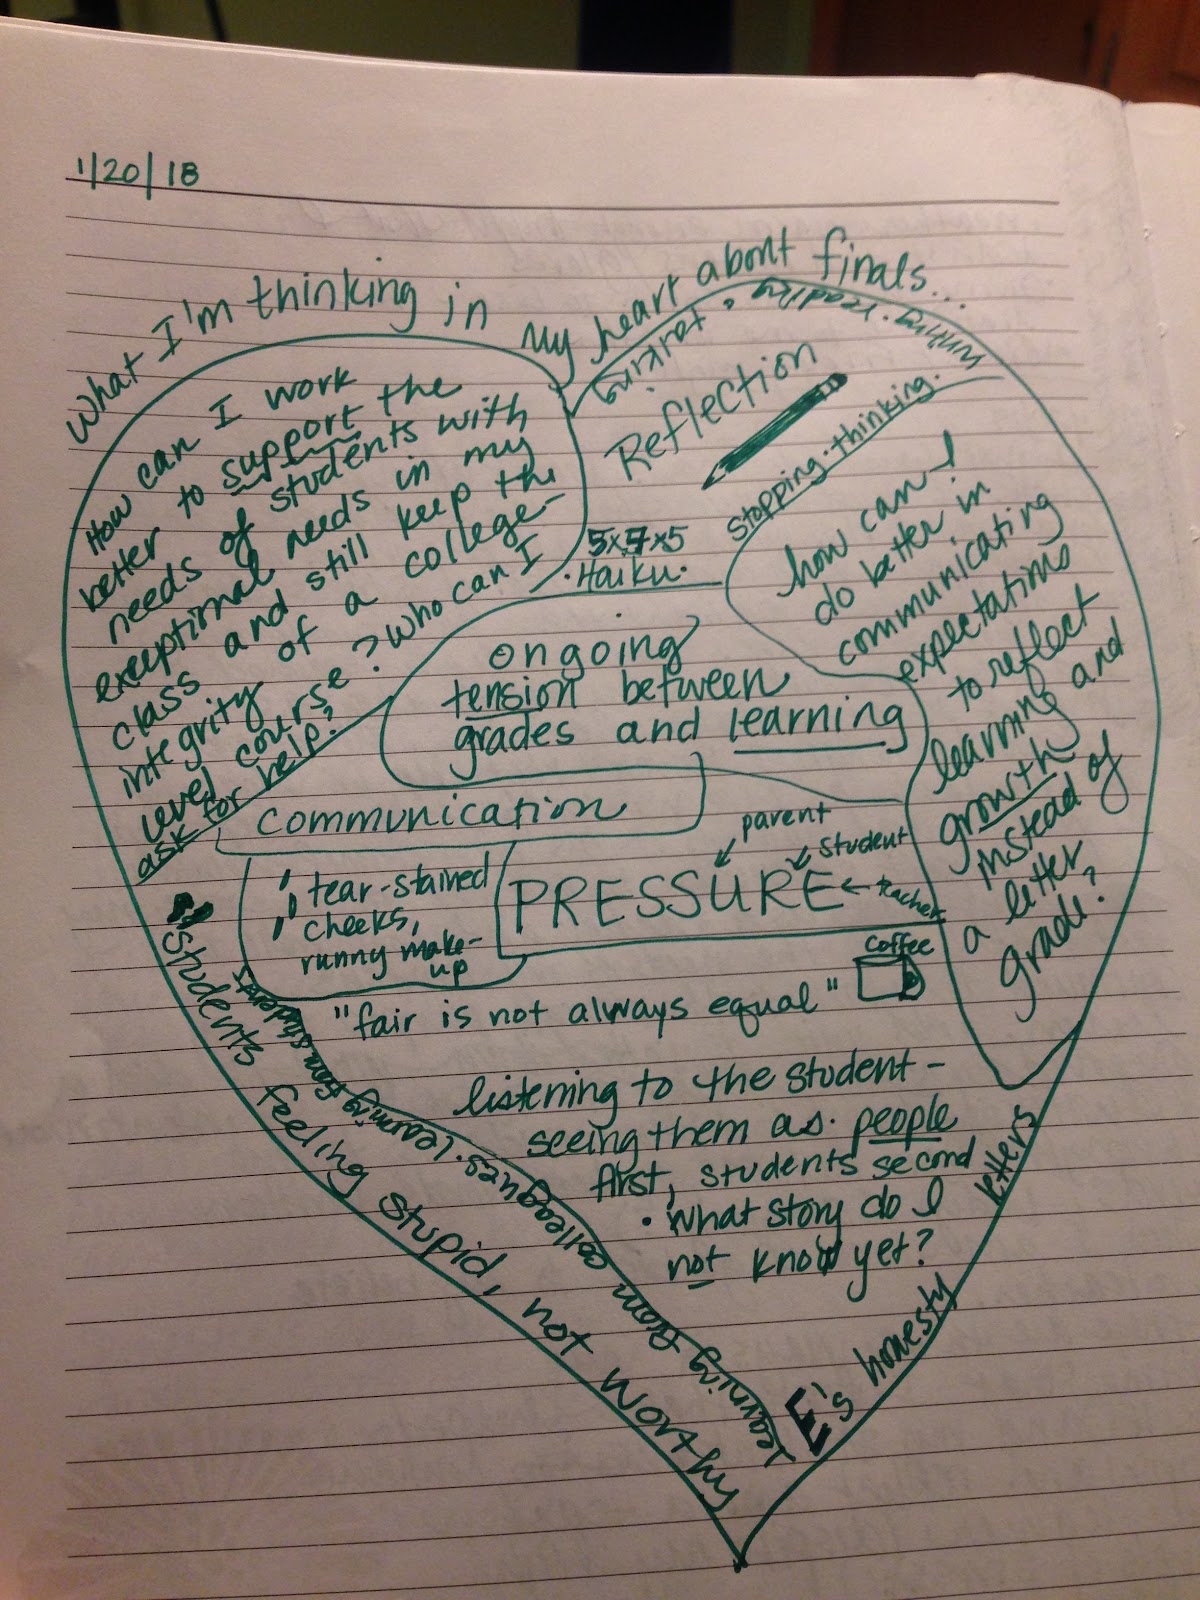 1/20/18
What I'm thinking in my heart about finals...
How can I work
better to support the
needs of students with
exceptional needs in my
class and still keep the
integrity of a college-
level course? Who can I
ask for help?
writing · reading · talking
Reflection
Stopping · thinking ·
5x7x5
· Haiku ·
how can I
do better in
communicating
expectations
to reflect
learning and
growth
instead of
a letter
grade?
ongoing
tension between
grades and learning
communication
tear-stained
cheeks,
runny make-
up
PRESSURE
parent
student
teacher
"fair is not always equal"
coffee
listening to the student -
seeing them as people
first, students second
· what story do I
not know yet?
students feeling stupid, not worthy
learning from colleagues · learning from students
letters
E's honesty